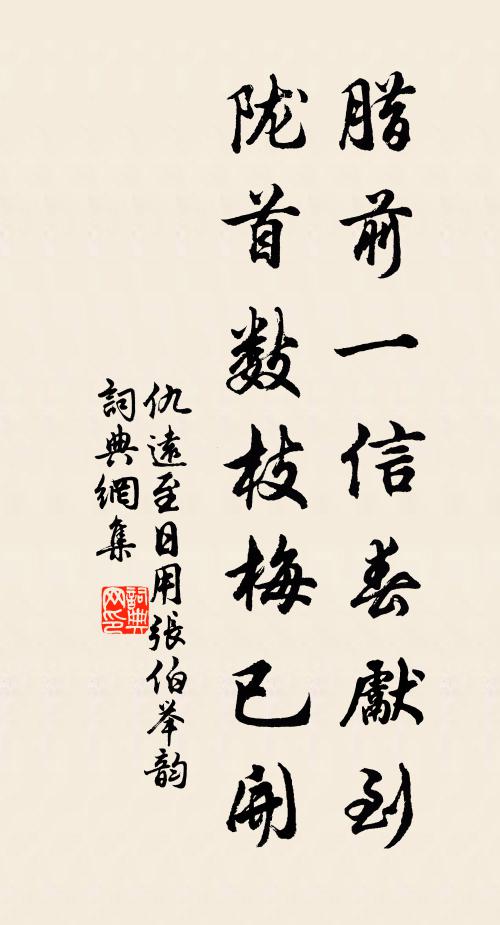 腊前一信春獻到
陇首数枝梅已開
仇遠至日用張伯举韵
詞典網集
詞典网印